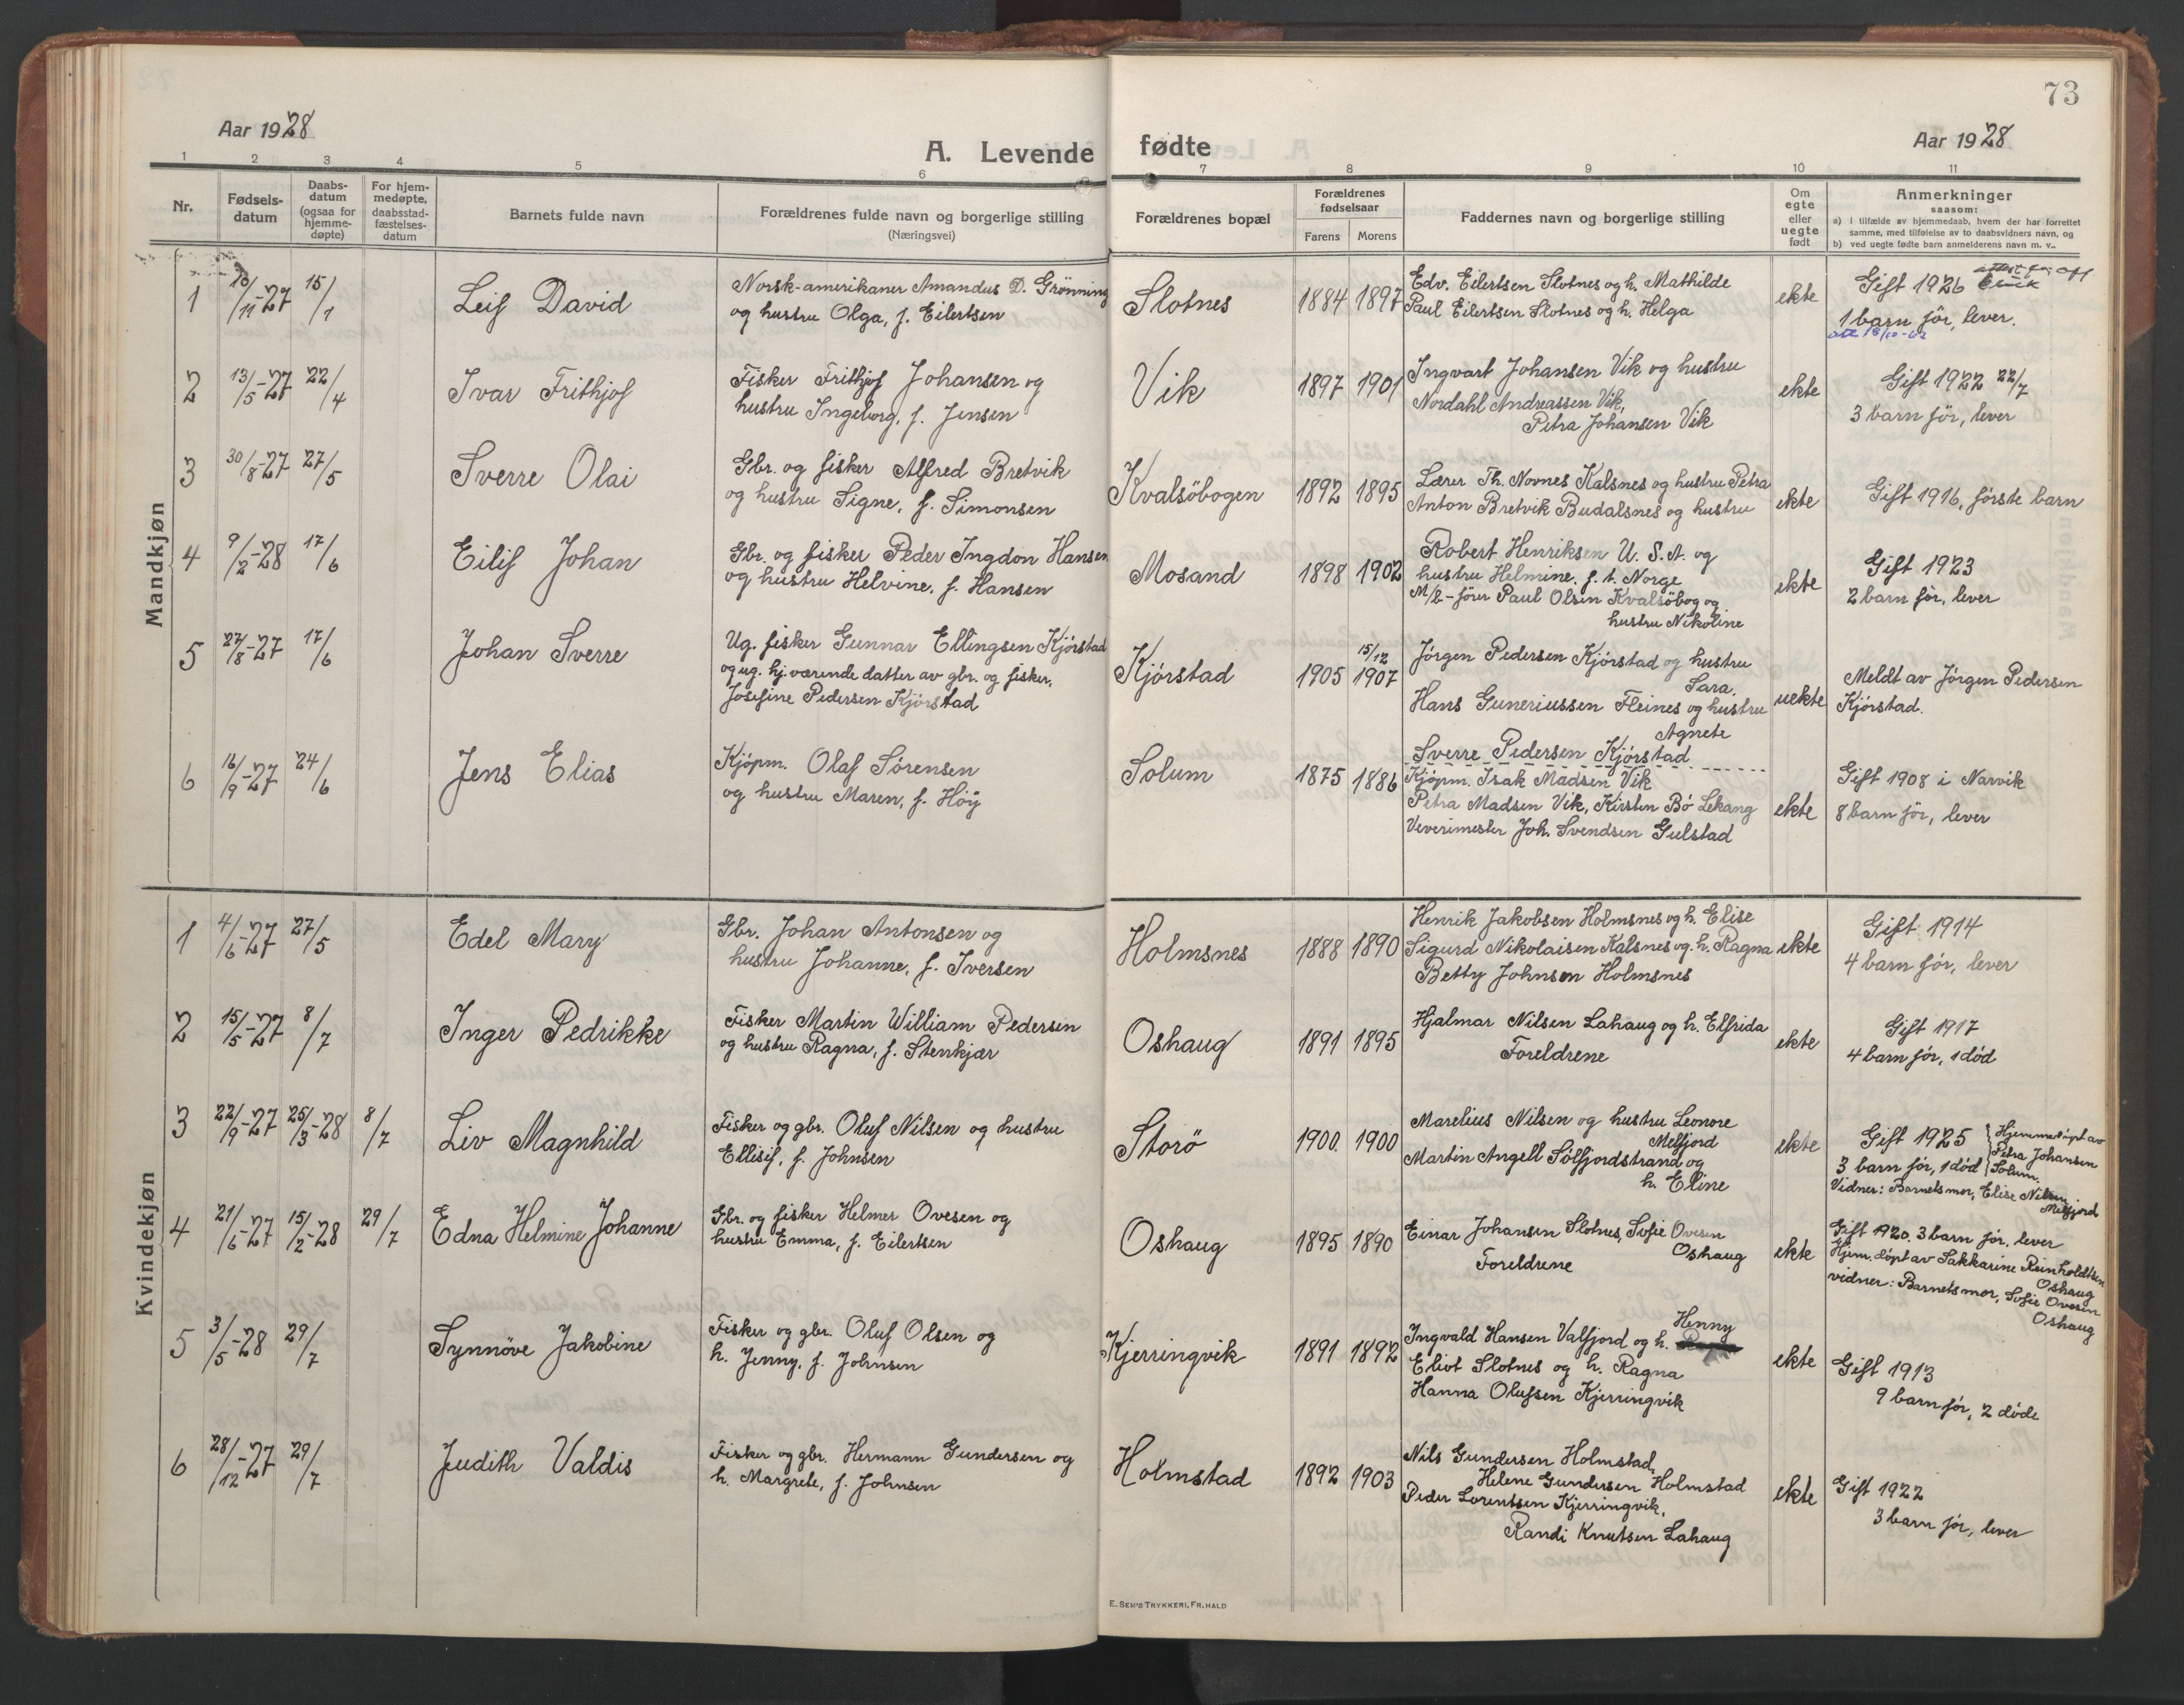 73
Aar 1928
A. Levende fødte
Aar 1928
1 2 3 4 5 6 7 8 9 10 11
Nr.
Fødsels-
datum
Daabs-
datum
(ogsaa for
hjemme-
døpte)
For hjem-
medøpte,
daabsstad-
fæstelses-
datum
Barnets fulde navn
Forældrenes fulde navn og borgerlige stilling
(Næringsvei)
Forældrenes bopæl
Forældrenes
fødselsaar
Farens Morens
Faddernes navn og borgerlige stilling
Om
egte
eller
uegte
født
Anmerkninger
saasom:
a) i tilfælde av hjemmedaab, hvem der har forrettet
samme, med tilføielse av to daabsvidners navn, og
b) ved uegte fødte barn anmelderens navn m. v..
Mandkjøn
1 13/11-27 15/1 Leif David
Norsk-amerikaner Amandus D. Grønning
og hustru Olga, f. Eilertsen
Slotnes 1884 1897
Edv. Eilertsen Slotnes og h. Mathilde
Paul Eilertsen Slotnes og h. Helga
ekte
Gift 1926
1 barn før, lever.
2 13/5-27 22/4 Ivar Frithjof
Fisker Frithjof Johansen og
hustru Ingeborg, f. Jensen
Vik 1897 1901
Ingvart Johansen Vik og hustru
Nordahl Andreassen Vik,
Petra Johansen Vik
ekte
Gift 1922 22/7
3 barn før, lever
3 30/8-27 27/5 Sverre Olai
Gbr. og fisker Alfred Bretvik
og hustru Signe, f. Simonsen
Kvalsöbogen 1892 1895
Lærer Th. Novnes Kalsnes og hustru Petra
Anton Bretvik Budalsnes og hustru
ekte
Gift 1916, første barn
4 9/2-28 17/6 Eilif Johan
Gbr. og fisker Peder Ingdon Hansen
og hustru Helvine, f. Hansen
Mosand 1898 1902
Robert Henriksen U. S. A. og
hustru Helmine. f. t. Norge
M/b-fører Paul Olsen Kvalsöbog og
hustru Nikoline
ekte
Gift 1923
2 barn før, lever
5 27/8-27 17/6 Johan Sverre
Ug. fisker Gunnar Ellingsen Kjørstad
og ug. hj. værende datter av gbr. og fisker,
Josefine Pedersen Kjørstad
Kjørstad 1905 15/12 1907
Jørgen Pedersen Kjørstad og hustru
Sara.
Hans Guneriussen Fleines og hustru
Agnete
Sverre Pedersen Kjørstad
uekte
Meldt av Jørgen Pedersen
Kjørstad.
6 16/9-27 24/6 Jens Elias
Kjøpm. Olaf Sørensen
og hustru Maren, f. Höy
Solum 1875 1886
Kjøpm. Isak Madsen Vik
Petra Madsen Vik, Kirsten Bö Lekang
Veverimester Joh. Svendsen Gulstad
ekte
Gift 1908 i Narvik
8 barn før, lever
Kvindekjøn
1 4/6-27 27/5 Edel Mary
Gbr. Johan Antonsen og
hustru Johanne, f. Iversen
Holmsnes 1888 1890
Henrik Jakobsen Holmsnes og h. Elise
Sigurd Nikolaisen Kalsnes og h. Ragna
Betty Johnsen Holmsnes
ekte
Gift 1914
4 barn før, lever
2 15/5-27 8/7 Inger Pedrikke
Fisker Martin William Pedersen
og hustru Ragna, f. Stenkjær
Oshaug 1891 1895
Hjalmar Nilsen Lahaug og h. Elfrida
Foreldrene
ekte
Gift 1917
4 barn før, 1 död
3 22/9-27 25/3-28 8/7 Liv Magnhild
Fisker og gbr. Oluf Nilsen og hustru
Ellisif, f. Johnsen
Storö 1900. 1900
Marelius Nilsen og hustru Leonore
Melfjord
Martin Angell Sølfjordstrand og
h. Eline
ekte
Gift 1925
3 barn før, 1 död
Hjemmedøpt av
Petra Johansen
Solum.
Vidner: Barnets mor, Elise Nilsen
Melfjord
4 21/6-27 15/2-28 29/7 Edna Helmine Johanne
Gbr. og fisker Helmer Ovesen og
hustru Emma, f. Eilertsen
Oshaug 1895 1890
Einar Johansen Slotnes, Sofie Ovesen
Oshaug
Foreldrene
ekte
Gift 1920. 3 barn før, lever
Hjem. døpt av Sakkarine Reinholdtsen
Oshaug
vidner: Barnets mor, Sofie Ovesen
Oshaug
5 3/5-28 29/7 Synnöve Jakobine
Fisker og gbr. Oluf Olsen og
h. Jenny, f. Johnsen
Kjerringvik 1891 1892
Henny
Ingvald Hansen Valfjord og h.
Eliot Slotnes og h. Ragna
Hanna Olufsen Kjerringvik
ekte
Gift 1913
9 barn før, 2 döde
6 28/12-27 29/7 Judith Valdis
Fisker og gbr. Hermann Gundersen og
h. Margrete, f. Johnsen
Holmstad 1892 1903
Nils Gundersen Holmstad,
Helene Gundersen Holmstad
Peder Lorentsen Kjerringvik,
Randi Knutsen Lahaug
ekte
Gift 1922
3 barn før, lever
E. SEM'S TRYKKERI, FR.HALD